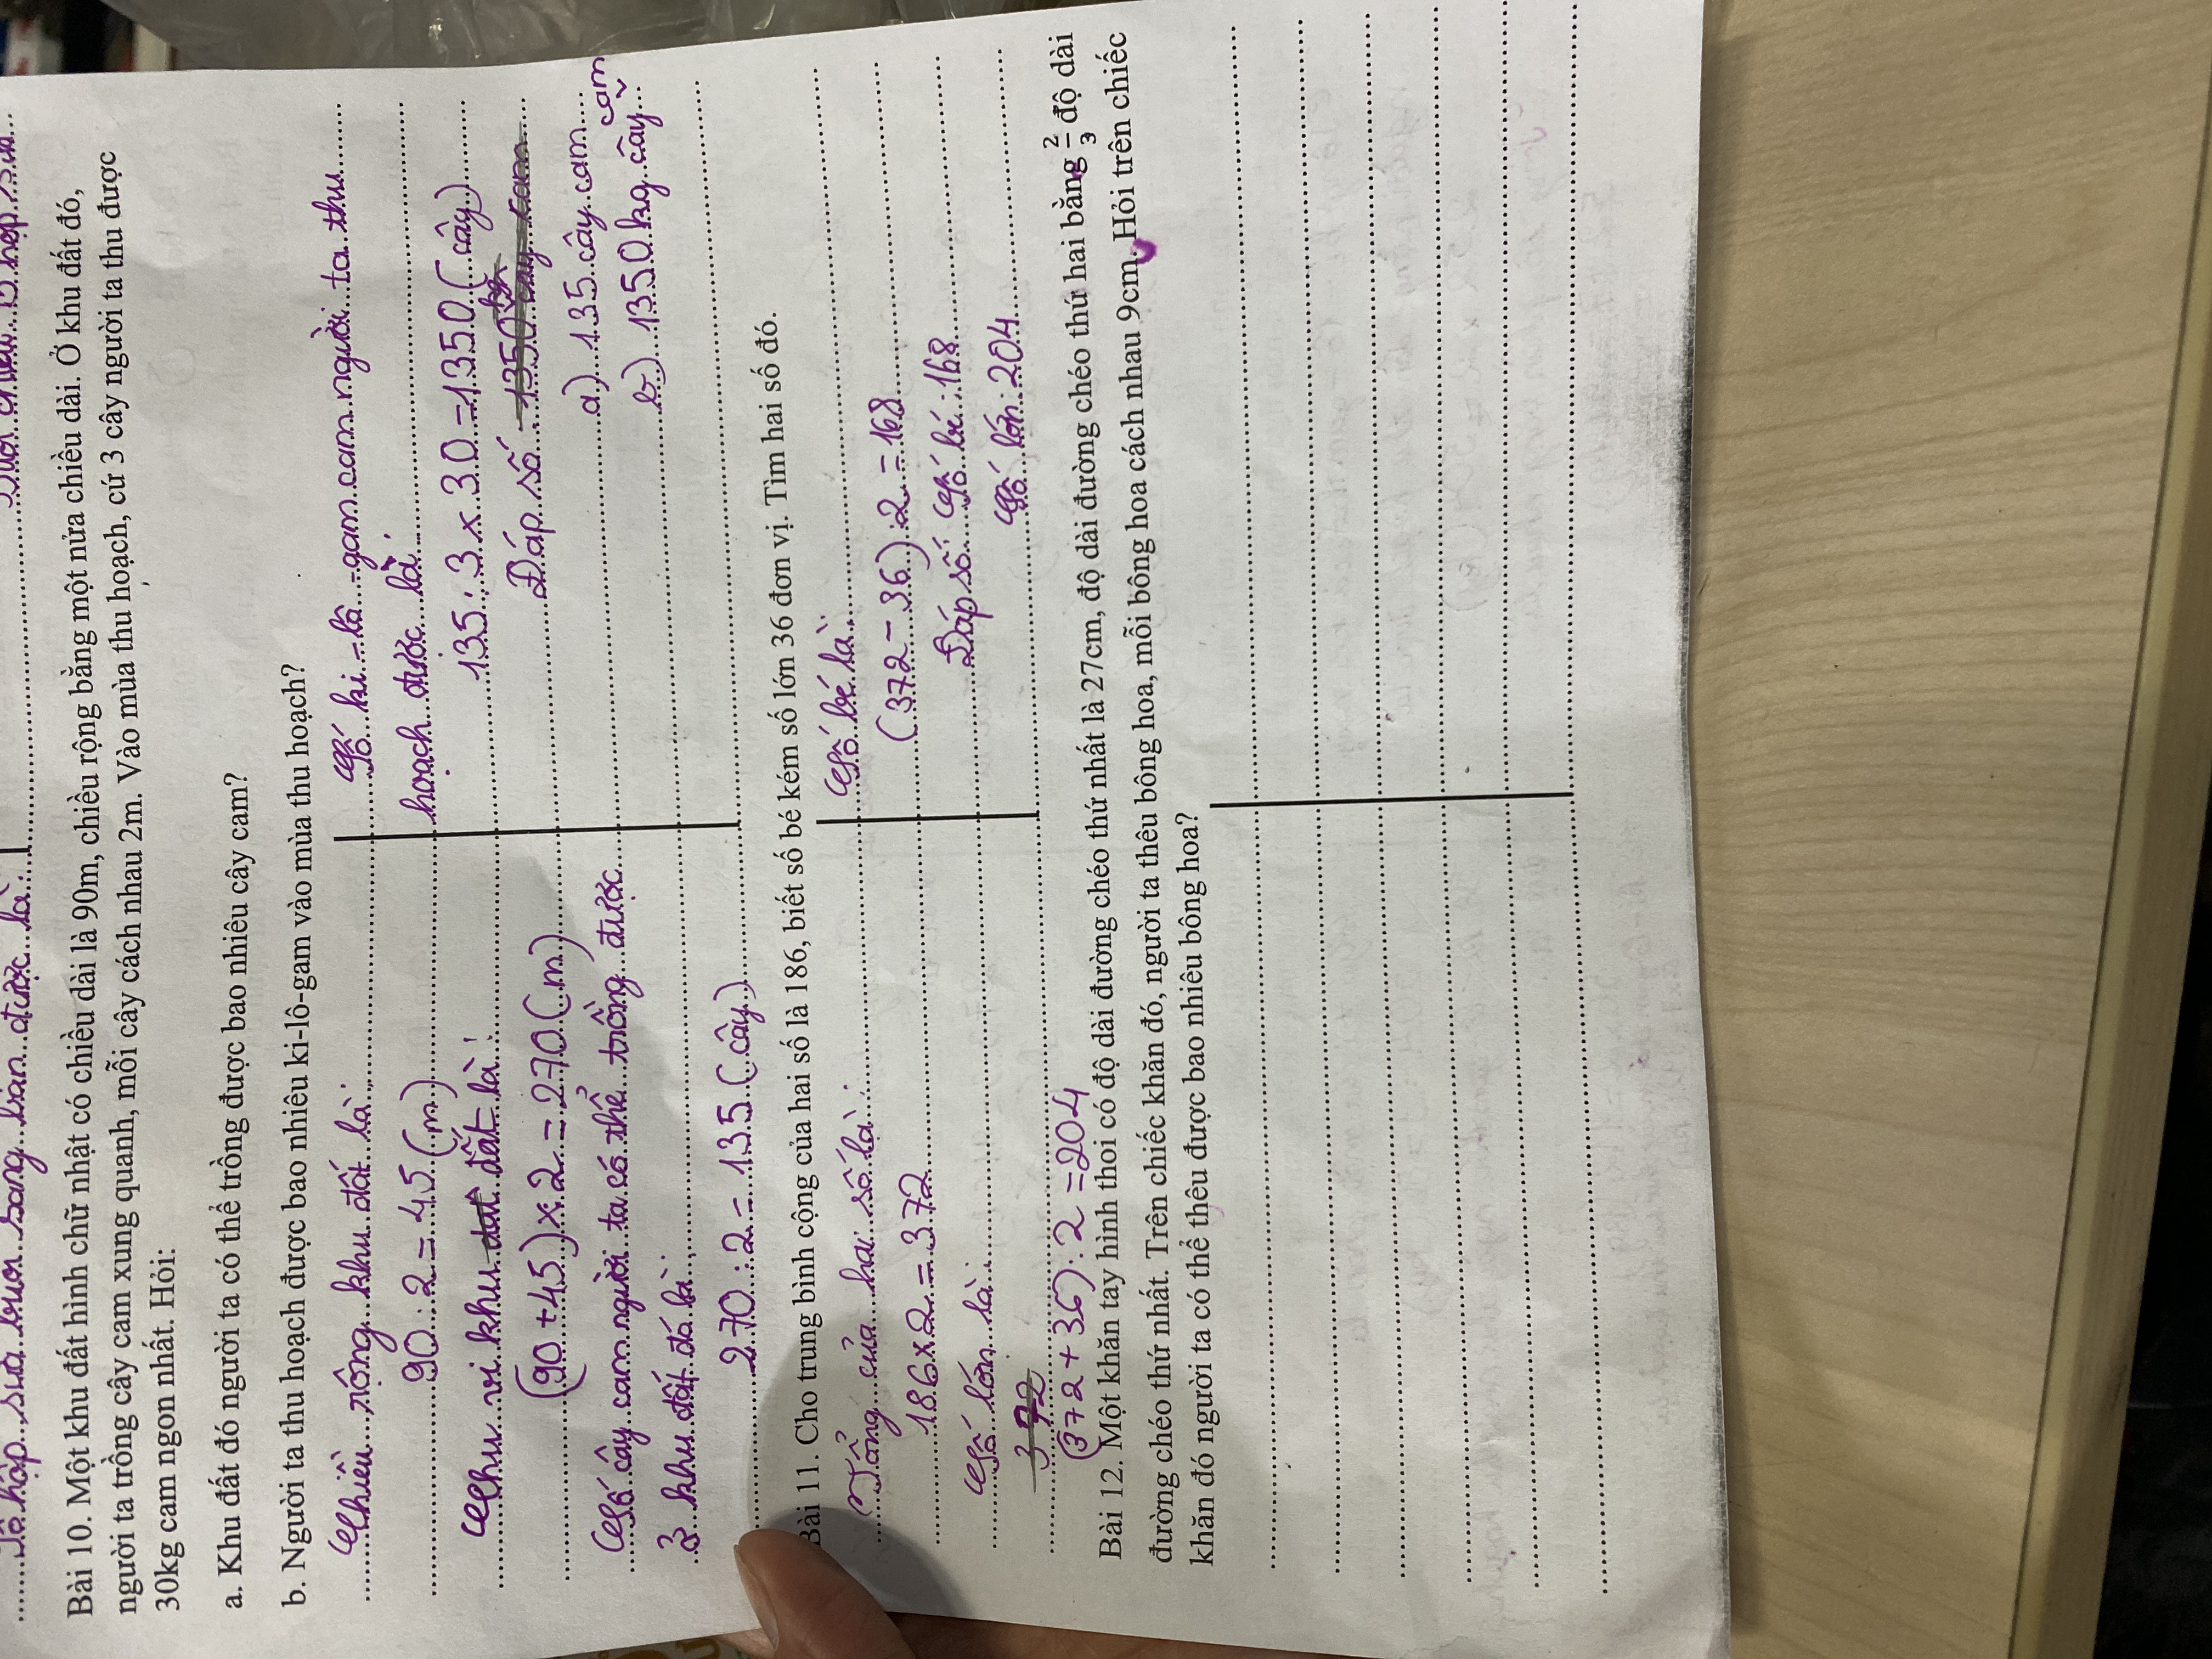 hộp sữa buổi sáng bán được là:
Bài 10. Một khu đất hình chữ nhật có chiều dài là 90m, chiều rộng bằng một nửa chiều dài. Ở khu đất đó,
người ta trồng cây cam xung quanh, mỗi cây cách nhau 2m. Vào mùa thu hoạch, cứ 3 cây người ta thu được
30kg cam ngon nhất. Hỏi:
a. Khu đất đó người ta có thể trồng được bao nhiêu cây cam?
b. Người ta thu hoạch được bao nhiêu ki-lô-gam vào mùa thu hoạch?
Chiều rộng khu đất là:
90 : 2 = 45 (m)
Chu vi khu đất là:
(90 + 45) x 2 = 270 (m)
Số cây cam người ta có thể trồng được
ở khu đất đó là:
270 : 2 = 135 (cây)
Số ki-lô-gam cam người ta thu
hoạch được là:
135 : 3 x 30 = 1350 (cây)
Đáp số 1350 cây cam
a) 135 cây cam
b) 1350 kg cây cam
Bài 11. Cho trung bình cộng của hai số là 186, biết số bé kém số lớn 36 đơn vị. Tìm hai số đó.
Tổng của hai số là:
186 x 2 = 372
Số lớn là:
372
(372 + 36) : 2 = 204
Số bé là:
(372 - 36) : 2 = 168
Đáp số: Số bé: 168
Số lớn: 204
Bài 12. Một khăn tay hình thoi có độ dài đường chéo thứ nhất là 27cm, độ dài đường chéo thứ hai bằng 2/3 độ dài
đường chéo thứ nhất. Trên chiếc khăn đó, người ta thêu bông hoa, mỗi bông hoa cách nhau 9cm. Hỏi trên chiếc
khăn đó người ta có thể thêu được bao nhiêu bông hoa?